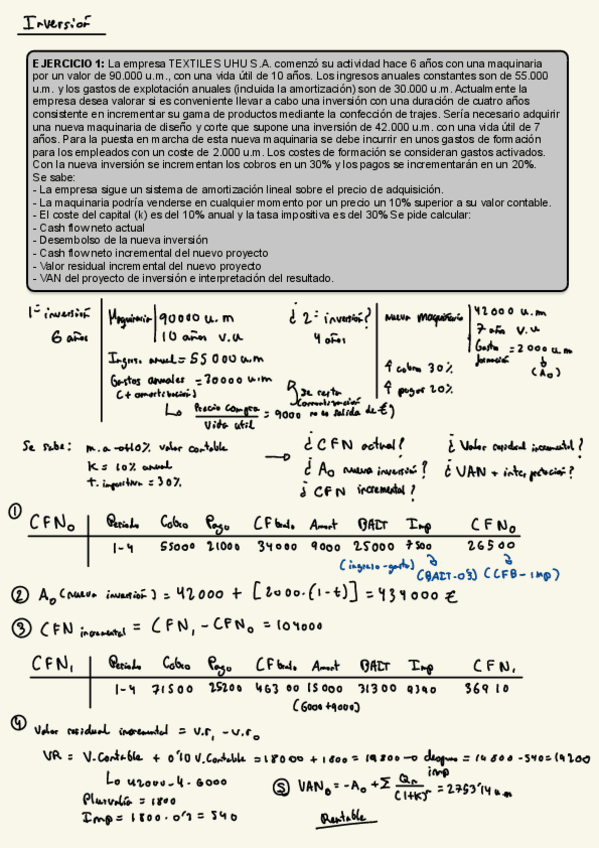 Inversión
EJERCICIO 1: La empresa TEXTILES UHU S.A. comenzó su actividad hace 6 años con una maquinaria
por un valor de 90.000 u.m., con una vida útil de 10 años. Los ingresos anuales constantes son de 55.000
u.m. y los gastos de explotación anuales (incluida la amortización) son de 30.000 u.m. Actualmente la
empresa desea valorar si es conveniente llevar a cabo una inversión con una duración de cuatro años
consistente en incrementar su gama de productos mediante la confección de trajes. Sería necesario adquirir
una nueva maquinaria de diseño y corte que supone una inversión de 42.000 u.m. con una vida útil de 7
años. Para la puesta en marcha de esta nueva maquinaria se debe incurrir en unos gastos de formación
para los empleados con un coste de 2.000 u.m. Los costes de formación se consideran gastos activados.
Con la nueva inversión se incrementan los cobros en un 30% y los pagos se incrementarán en un 20%.
Se sabe:
- La empresa sigue un sistema de amortización lineal sobre el precio de adquisición.
- La maquinaria podría venderse en cualquier momento por un precio un 10% superior a su valor contable.
- El coste del capital (k) es del 10% anual y la tasa impositiva es del 30% Se pide calcular:
- Cash flow neto actual
- Desembolso de la nueva inversión
- Cash flow neto incremental del nuevo proyecto
- Valor residual incremental del nuevo proyecto
- VAN del proyecto de inversión e interpretación del resultado.
1ª inversión Maquinaria 90000 u.m ¿ 2ª inversión? nueva maquinaria 42000 u.m
6 años 10 años v.u 4 años 7 año v.u
Gasto formación = 2000 u.m
Ingreso anual = 55000 u.m ↑ cobro 30% (A₀)
Gastos anuales = 30000 u.m ↑ pagos 20%
(+ amortización) Se resta
Precio compra / Vida útil = 9000 no es salida de €)
Se sabe: valor contable ¿ CFN actual? ¿ Valor residual incremental?
K = 10% anual ¿ A₀ nueva inversión? ¿ VAN + interpretación?
t. impositiva = 30% ¿ CFN incremental?
① CFN₀ Periodo Cobro Pago CF bruto Amort BAIT Imp CFN₀
1-4 55000 21000 34000 9000 25000 7500 26500
(ingreso-gasto) (BAIT·0'3) (CFB-imp)
② A₀ (nueva inversión) = 42000 + [2000·(1-t)] = 434000 €
③ CFN incremental = CFN₁ - CFN₀ = 104000
CFN₁ Periodo Cobro Pago CF bruto Amort BAIT Imp CFN₁
1-4 71500 25200 46300 15000 31300 9390 36910
(6000+9000)
④ Valor residual incremental = v.r₁ - v.r₀
VR = V.Contable + 0'10 V.Contable = 18000 + 1800 = 19800 → despues imp = 19800 - 540 = 19200
42000 - 4 · 6000 ⑤ VAN₀ = -A₀ + Σ Qn / (1+K)ⁿ = 2753'14 u.m
Plusvalía = 1800
Imp = 1800 · 0'3 = 540 Rentable